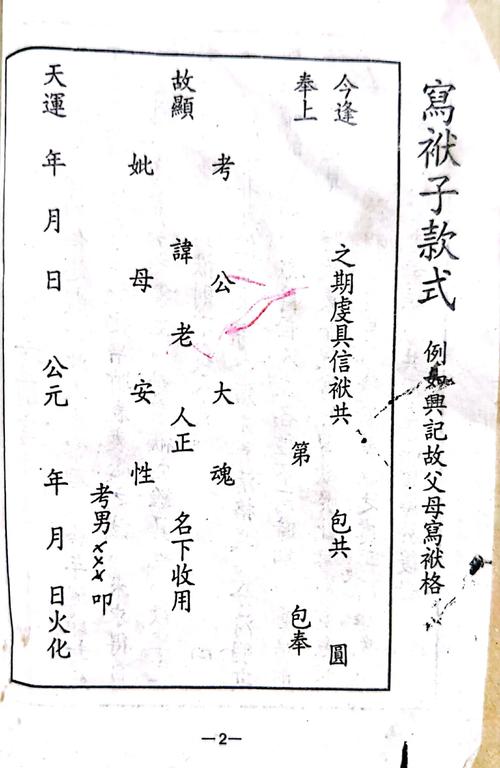 寫袱子款式 例如興記故父母寫袱格
今逢 之期虔具信袱共 包共 圓
奉上 第 包奉
考 公 大 魂
故顯 諱 老 人正 名下收用
妣 母 安 性
考男××× 叩
天運 年 月 日 公元 年 月 日火化
—2—